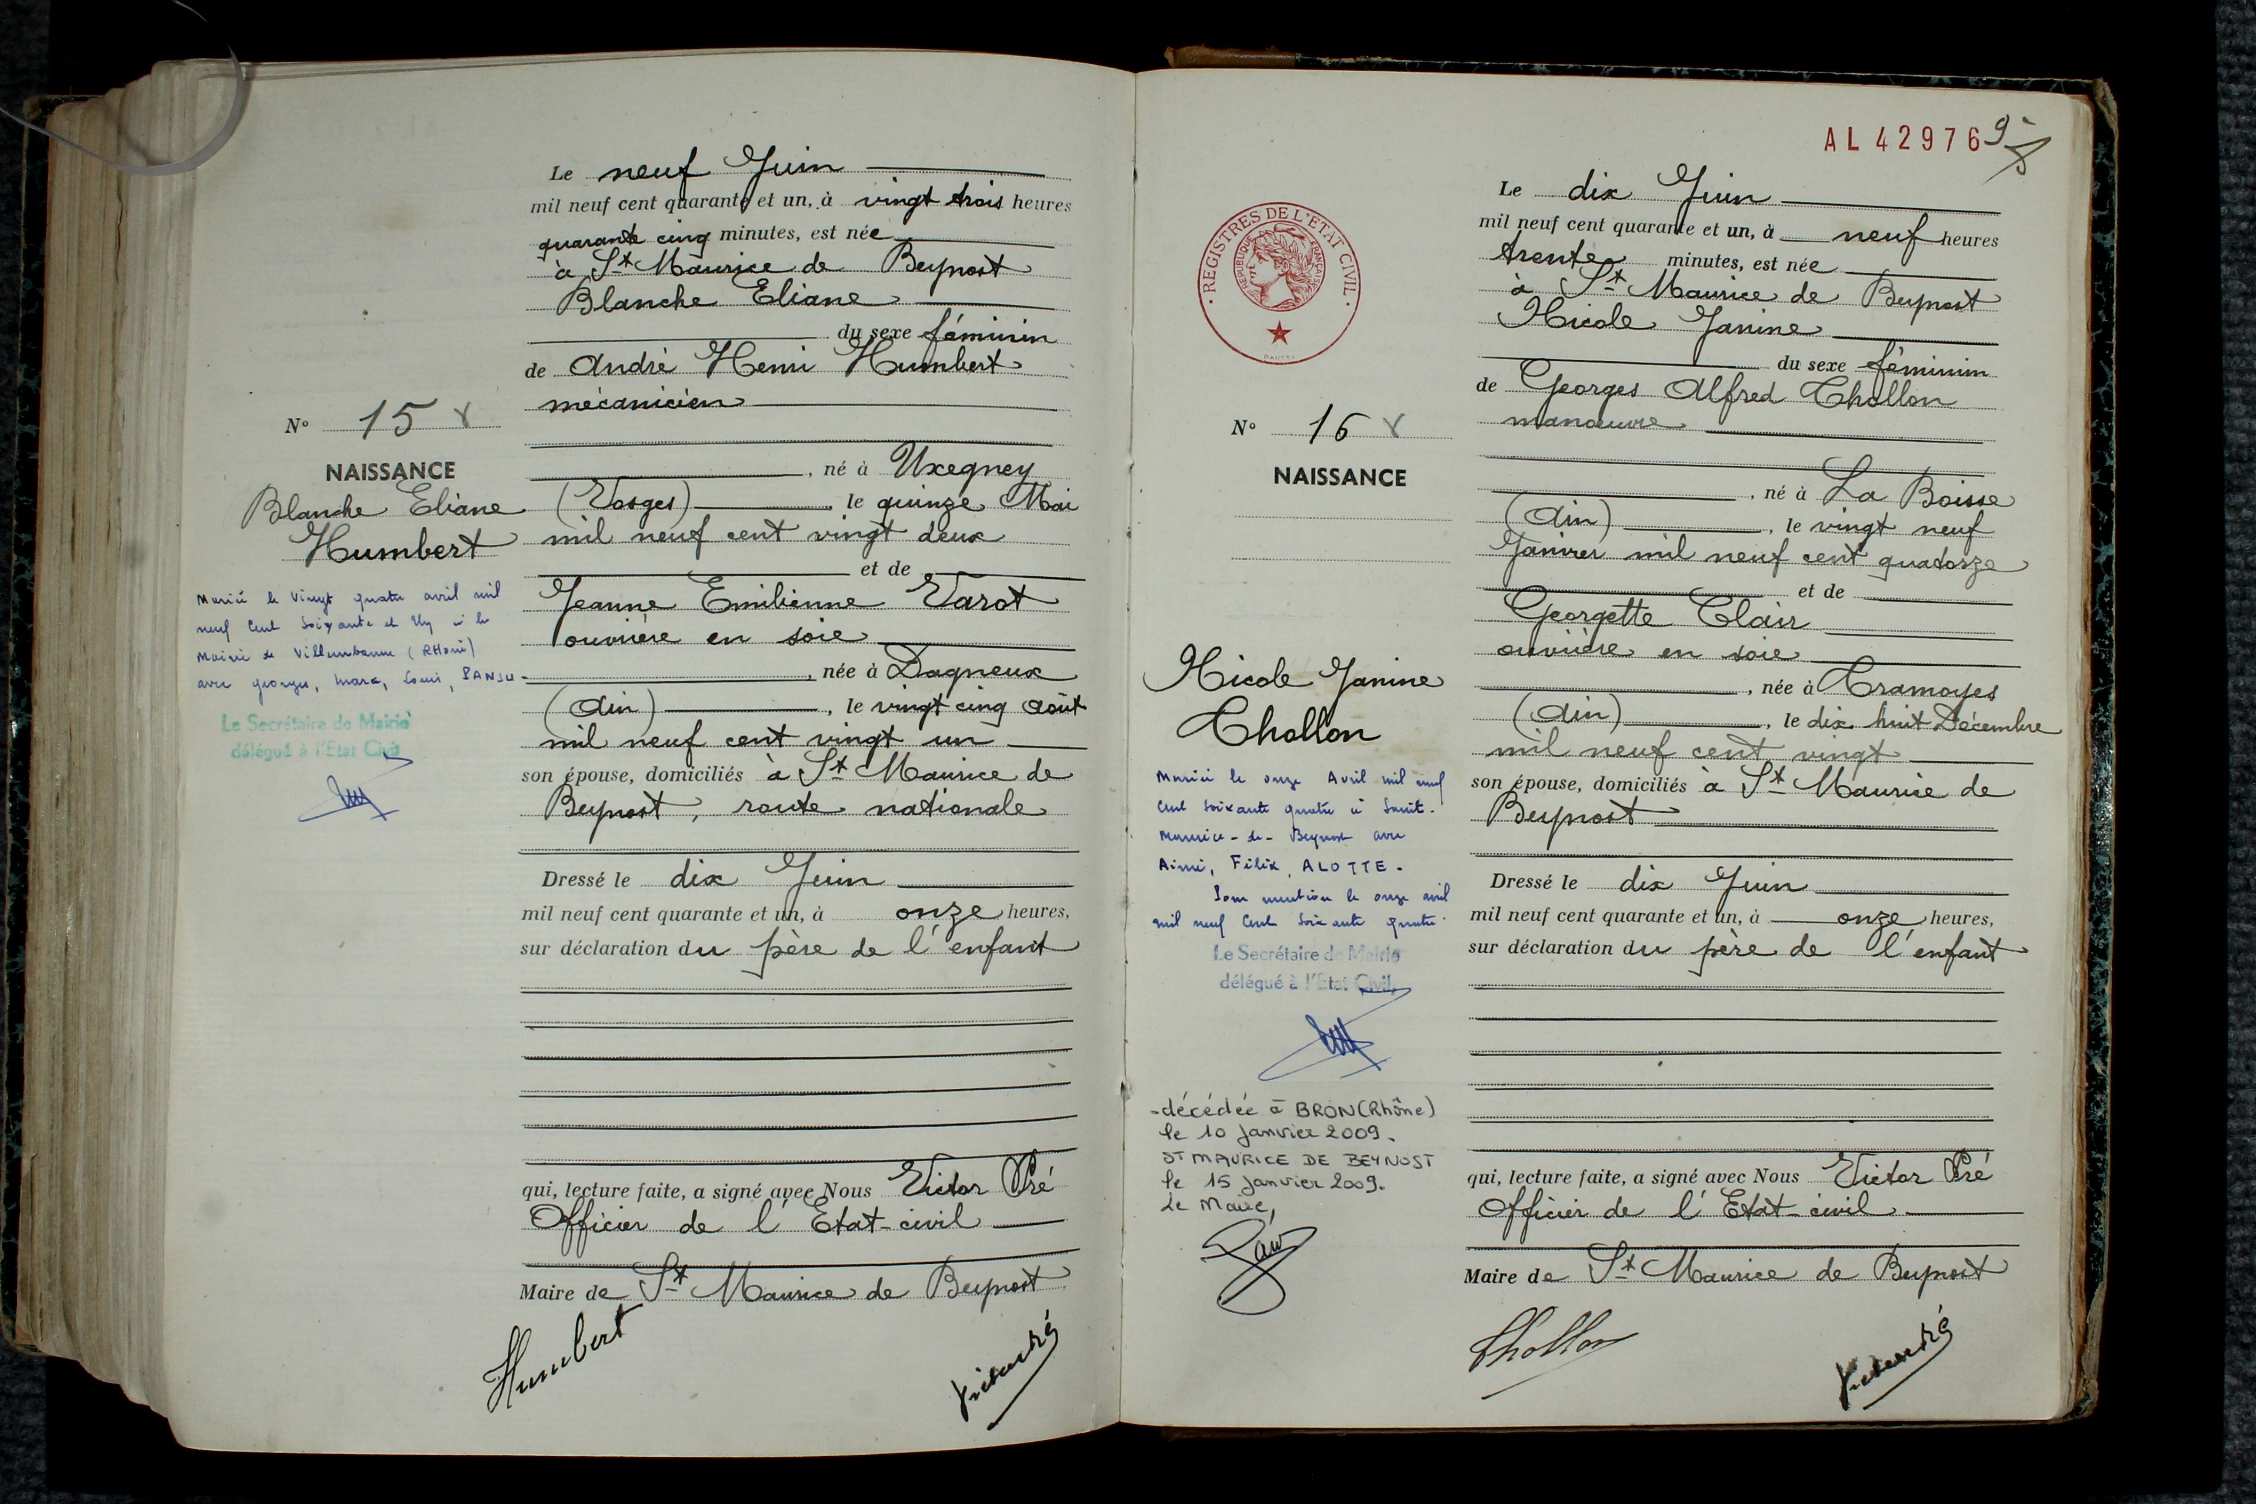 Le neuf Juin
mil neuf cent quarante et un, à vingt trois heures
quarante cinq minutes, est née
à St Maurice de Beynost
Blanche Eliane
du sexe féminin
de André Henri Humbert
mécanicien
, né à Uxegney
(Vosges) le quinze Mai
mil neuf cent vingt deux
et de
Jeanne Emilienne Varot
ouvrière en soie
, née à Dagneux
(Ain) , le vingt cinq août
mil neuf cent vingt un
son épouse, domiciliés à St Maurice de
Beynost, route nationale
Dressé le dix Juin
mil neuf cent quarante et un, à onze heures,
sur déclaration du père de l'enfant
qui, lecture faite, a signé avec Nous Victor Pré
Officier de l'Etat-civil
Maire de St Maurice de Beynost
Humbert
Victor Pré
N° 15
NAISSANCE
Blanche Eliane
Humbert
Marié le vingt quatre avril mil
neuf cent soixante et un à la
Mairie de Villeurbanne (Rhône)
avec Georges, Marc, Louis, PANSU
Le Secrétaire de Mairie
délégué à l'Etat Civil
AL 42976
REGISTRES DE L'ETAT CIVIL
REPUBLIQUE FRANÇAISE
N° 16
NAISSANCE
Nicole Janine
Chollon
Marié le onze Avril mil neuf
cent soixante quatre à Saint-
Maurice-de-Beynost avec
Aimé, Félix, ALOTTE.
Pour mention le onze avril
mil neuf cent soixante quatre.
Le Secrétaire de Mairie
délégué à l'Etat Civil,
-décédée à BRON (Rhône)
le 10 janvier 2009.
ST MAURICE DE BEYNOST
le 15 janvier 2009.
Le Maire,
Le dix Juin
mil neuf cent quarante et un, à neuf heures
trente minutes, est née
à St Maurice de Beynost
Nicole Janine
du sexe féminin
de Georges Alfred Chollon
manœuvre
, né à La Boisse
(Ain) , le vingt neuf
Janvier mil neuf cent quatorze
et de
Georgette Clair
ouvrière en soie
, née à Tramoyes
(Ain) , le dix huit Décembre
mil neuf cent vingt
son épouse, domiciliés à St Maurice de
Beynost
Dressé le dix Juin
mil neuf cent quarante et un, à onze heures,
sur déclaration du père de l'enfant
qui, lecture faite, a signé avec Nous Victor Pré
Officier de l'Etat-civil
Maire de St Maurice de Beynost
Chollon
Victor Pré